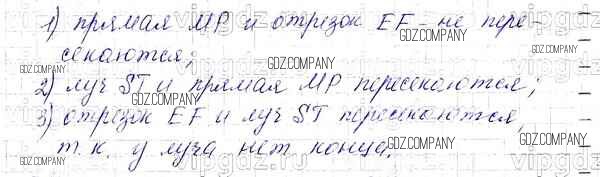 1) прямая MP и отрезок EF - не пере-
секаются;
2) луч ST и прямая MP пересекаются;
3) отрезок EF и луч ST пересекаются,
т.к. у луча нет конца.
GDZ.COMPANY
GDZ.COMPANY
GDZ.COMPANY
GDZ.COMPANY
GDZ.COMPANY
GDZ.COMPANY
GDZ.COMPANY
GDZ.COMPANY